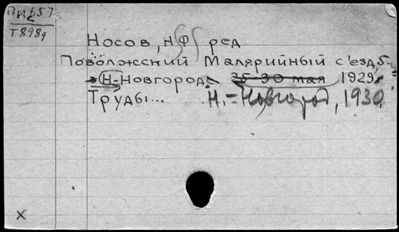 Т898g
Носов, НФ ред
Поволжсний Малярийный с'езд, 5-
в Н-Новгород, 25-30 мая 1929.
Труды... Н.-Новгород, 1930
x